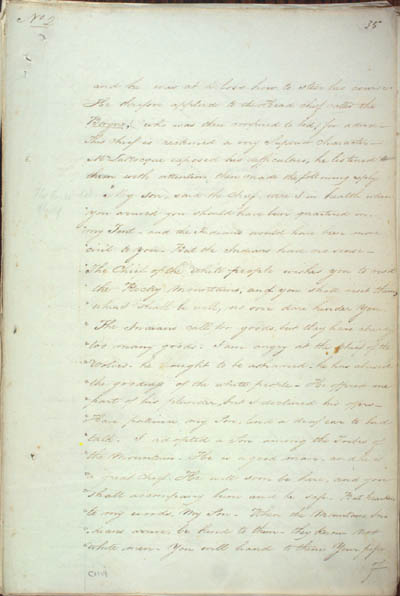 No 2
35
and he was at a loss how to steer his course
He therefore applied to the Head chief called the
Borgne, who was then confined to bed, for advice
This Chief is reckoned a very superior character
Mr LaRocque exposed his difficulties, he listened to
them with attention, then made the following reply
My Son, said the chief, were I in health when
you arrived you should have been quartered in
my Tent, and the Indians would have been more
civil to you. But the Indians have no sense
The Chief of the White people wishes you to visit
the Rocky Mountains, and you shall visit them,
what shall be will, no one dare hinder you
The Indians call for goods, but they have already
too many goods. I am angry at the chief of the
he ought to be ashamed, he has abused
the goodness of the white people. He offered me
part of his plunder, but I declined his offer
Have patience my Son, lend a deaf ear to bad
talk. I adopted a Son among the Tribes of
the Mountain. He is a good man, and he is
a great chief. He will soon be here, and you
shall accompany him and be safe. But hearken
to my words, My Son. When the Mountain In
dians arrive, be kind to them. they know not
white men. You will hand to them Your pipe